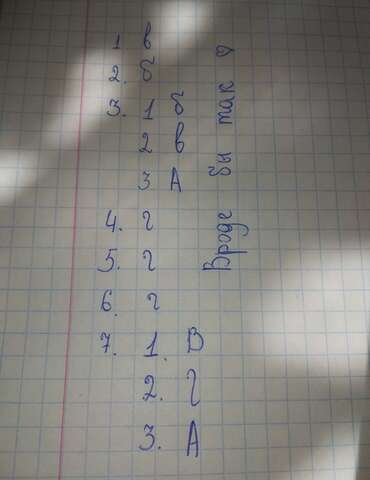 1 в
2. б
3. 1 б
2 в
3 А
4. г
5. г
6. г
7. 1. В
2. г
3. А
Вроде бы так